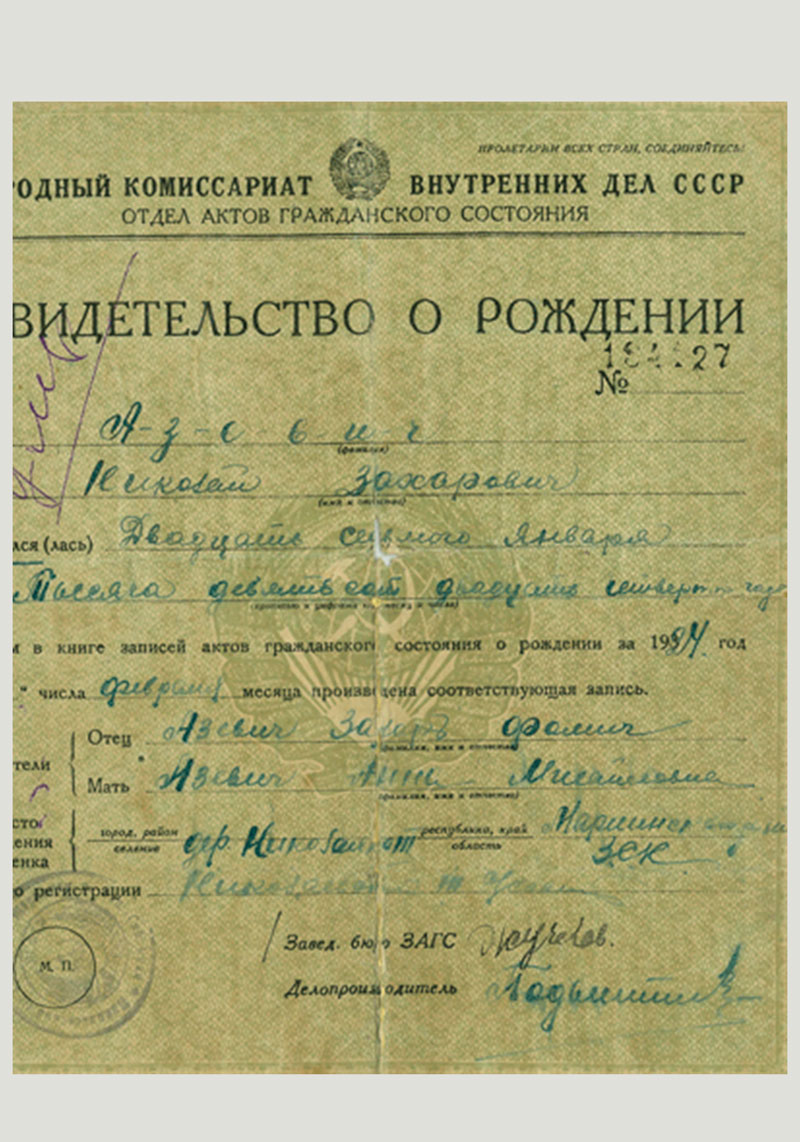 ПРОЛЕТАРИИ ВСЕХ СТРАН, СОЕДИНЯЙТЕСЬ!
РОДНЫЙ КОМИССАРИАТ ВНУТРЕННИХ ДЕЛ СССР
ОТДЕЛ АКТОВ ГРАЖДАНСКОГО СОСТОЯНИЯ
ВИДЕТЕЛЬСТВО О РОЖДЕНИИ
№
А-з-е-в-и-ч
(фамилия)
Николай Захарович
(имя и отчество)
лся (лась) Двадцать седьмого Января
Тысяча девятьсот двадцать четверт
м в книге записей актов гражданского состояния о рождении за 1924 год
" числа февраля месяца произведена соответствующая запись.
Отец Азевич Захар Фомич
(фамилия, имя и отчество)
тели
Мать Азевич Анна Михайловна
(фамилия, имя и отчество)
сто
ения
енка
город, район
селение
дер. республика, край
область
ЗСК
о регистрации
М. П.
Завед. бюро ЗАГС
Делопроизводитель